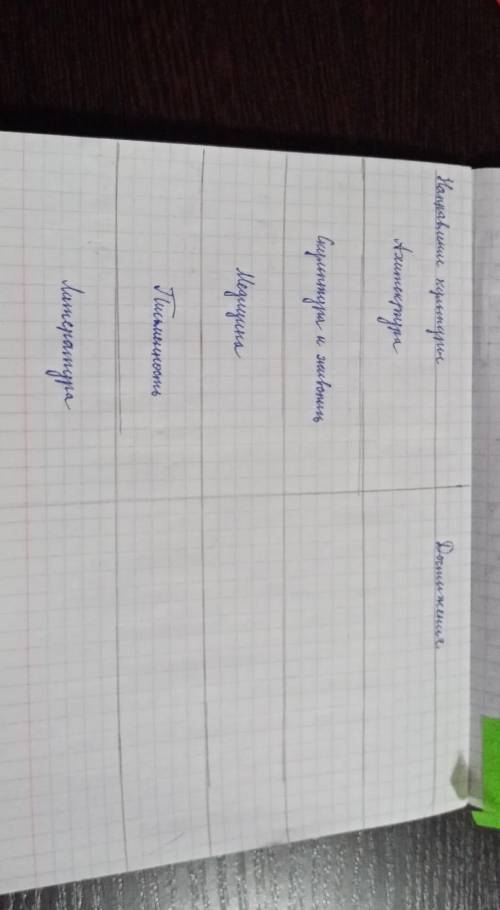 Направление культуры
Достижения
Архитектура
Скульптура и живопись
Медицина
Письменность
Литература